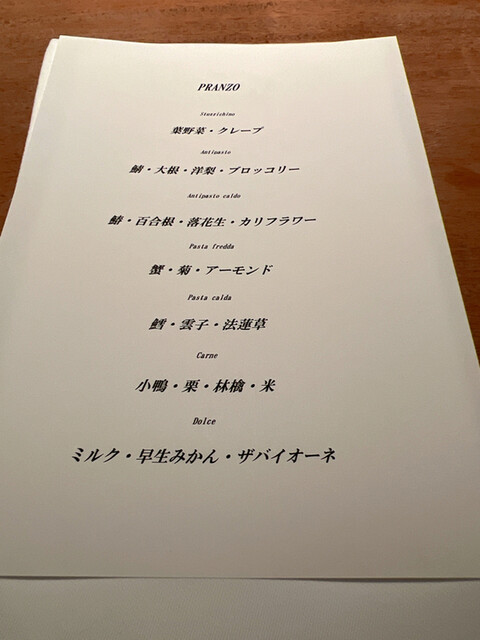 PRANZO
Stuzzichino
葉野菜・クレープ
Antipasto
鯖・大根・洋梨・ブロッコリー
Antipasto caldo
鰆・百合根・落花生・カリフラワー
Pasta fredda
蟹・菊・アーモンド
Pasta calda
鱈・雲子・法蓮草
Carne
小鴨・栗・林檎・米
Dolce
ミルク・早生みかん・ザバイオーネ